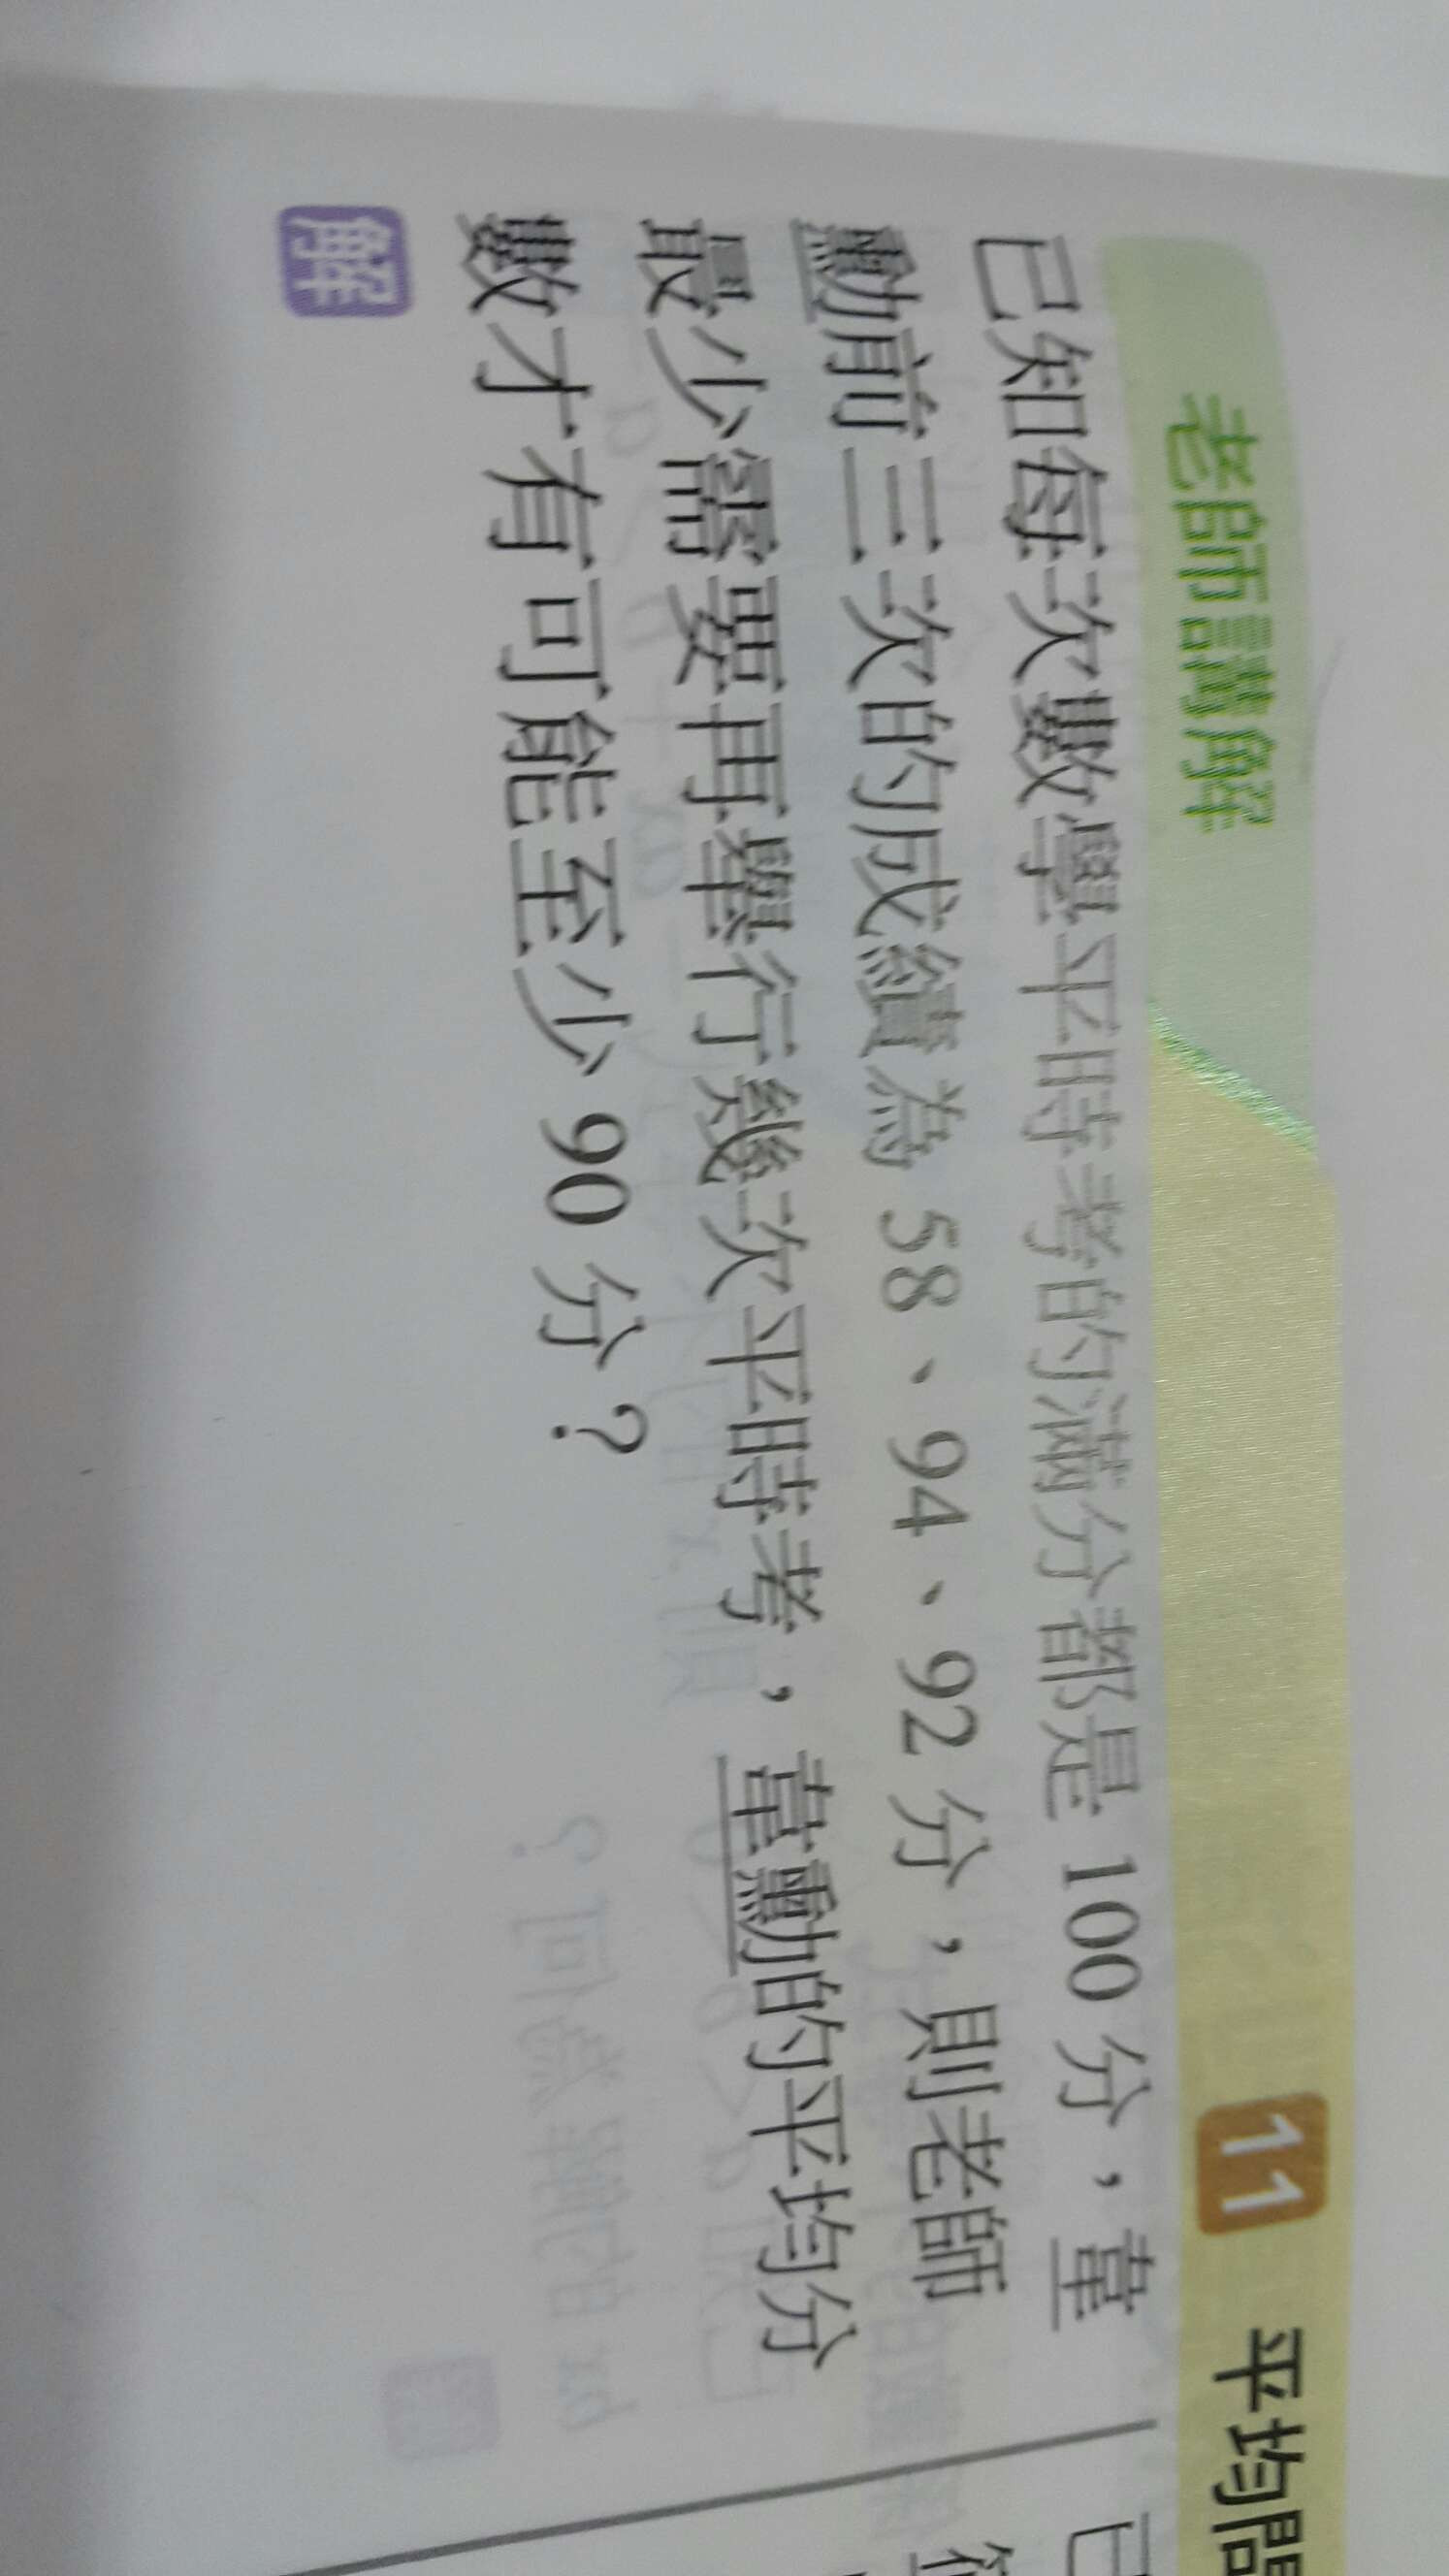 老師講解 11 平均問
已知每次數學平時考的滿分都是 100 分，韋
勳前三次的成績為 58、94、92 分，則老師
最少需要再舉行幾次平時考，韋勳的平均分
數才有可能至少 90 分？
解